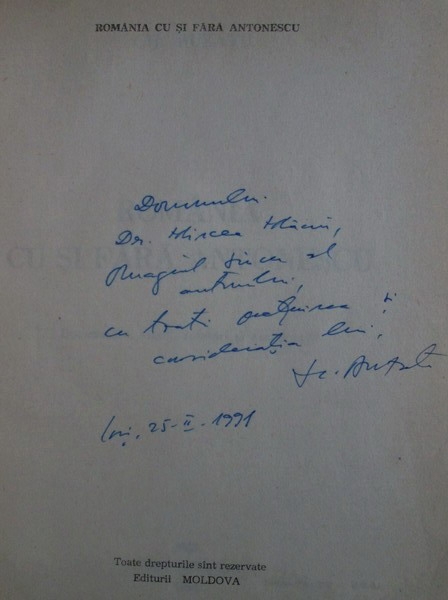 ROMÂNIA CU ȘI FĂRĂ ANTONESCU
Domnului
Dr. Mircea
Omagiul sincer al
autorului,
cu toată prețuirea și
considerația lui,
Iași, 25-II-1991
Toate drepturile sînt rezervate
Editurii MOLDOVA